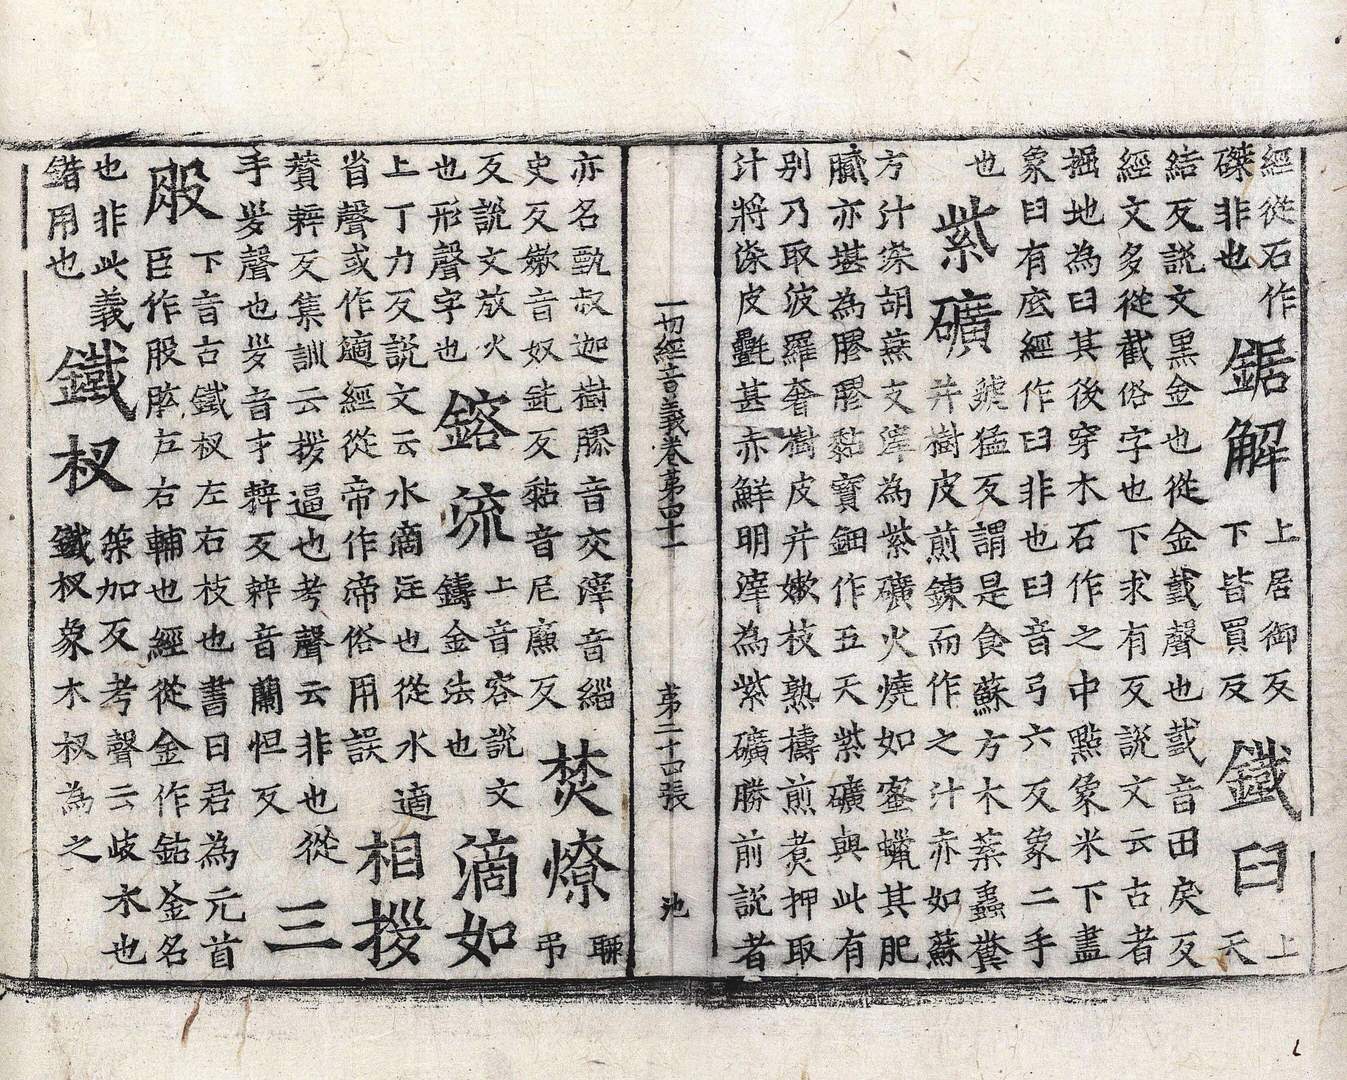 經從石作
磔非也
鋸解
上居御反
下皆買反
鐵臼
上天
結反說文黑金也從金𢧜聲也𢧜音田戾反
經文多從截俗字也下求有反說文云古者
掘地為臼其後穿木石作之中點象米下盡
象臼有底經作臼非也臼音弓六反象二手
也
紫礦
虢猛反謂是食蘇方木蟲糞
并樹皮煎鍊而作之汁赤如蘇
方汁染胡燕文滓為紫礦火燒如蜜蠟其肥
膩亦堪為膠膠黏寶鈿作五天紫礦與此有
別乃取波羅奢樹皮并嫰枝熟擣煎煑押取
汁將染皮㲲甚赤鮮明滓為紫礦勝前說者
一切經音義卷第四十一 第二十四張 池
亦名甄叔迦樹膠音交滓音緇
史反嫰音奴鈍反黏音尼廉反
焚燎
聯弔
反說文放火
也形聲字也
鎔流
上音容說文
鑄金法也
滴如
上丁力反說文云水滴注也從水適
省聲或作適經從帝作帝俗用誤
相拶
贊辢反集訓云拶逼也考聲云非也從
手聲也音才辢反辢音蘭怛反
三
股
下音古鐵杈左右枝也書曰君為元首
臣作股肱左右輔也經從金作鈷釜名
也非此義
錯用也
鐵杈
策加反考聲云歧木也
鐵杈象木杈為之